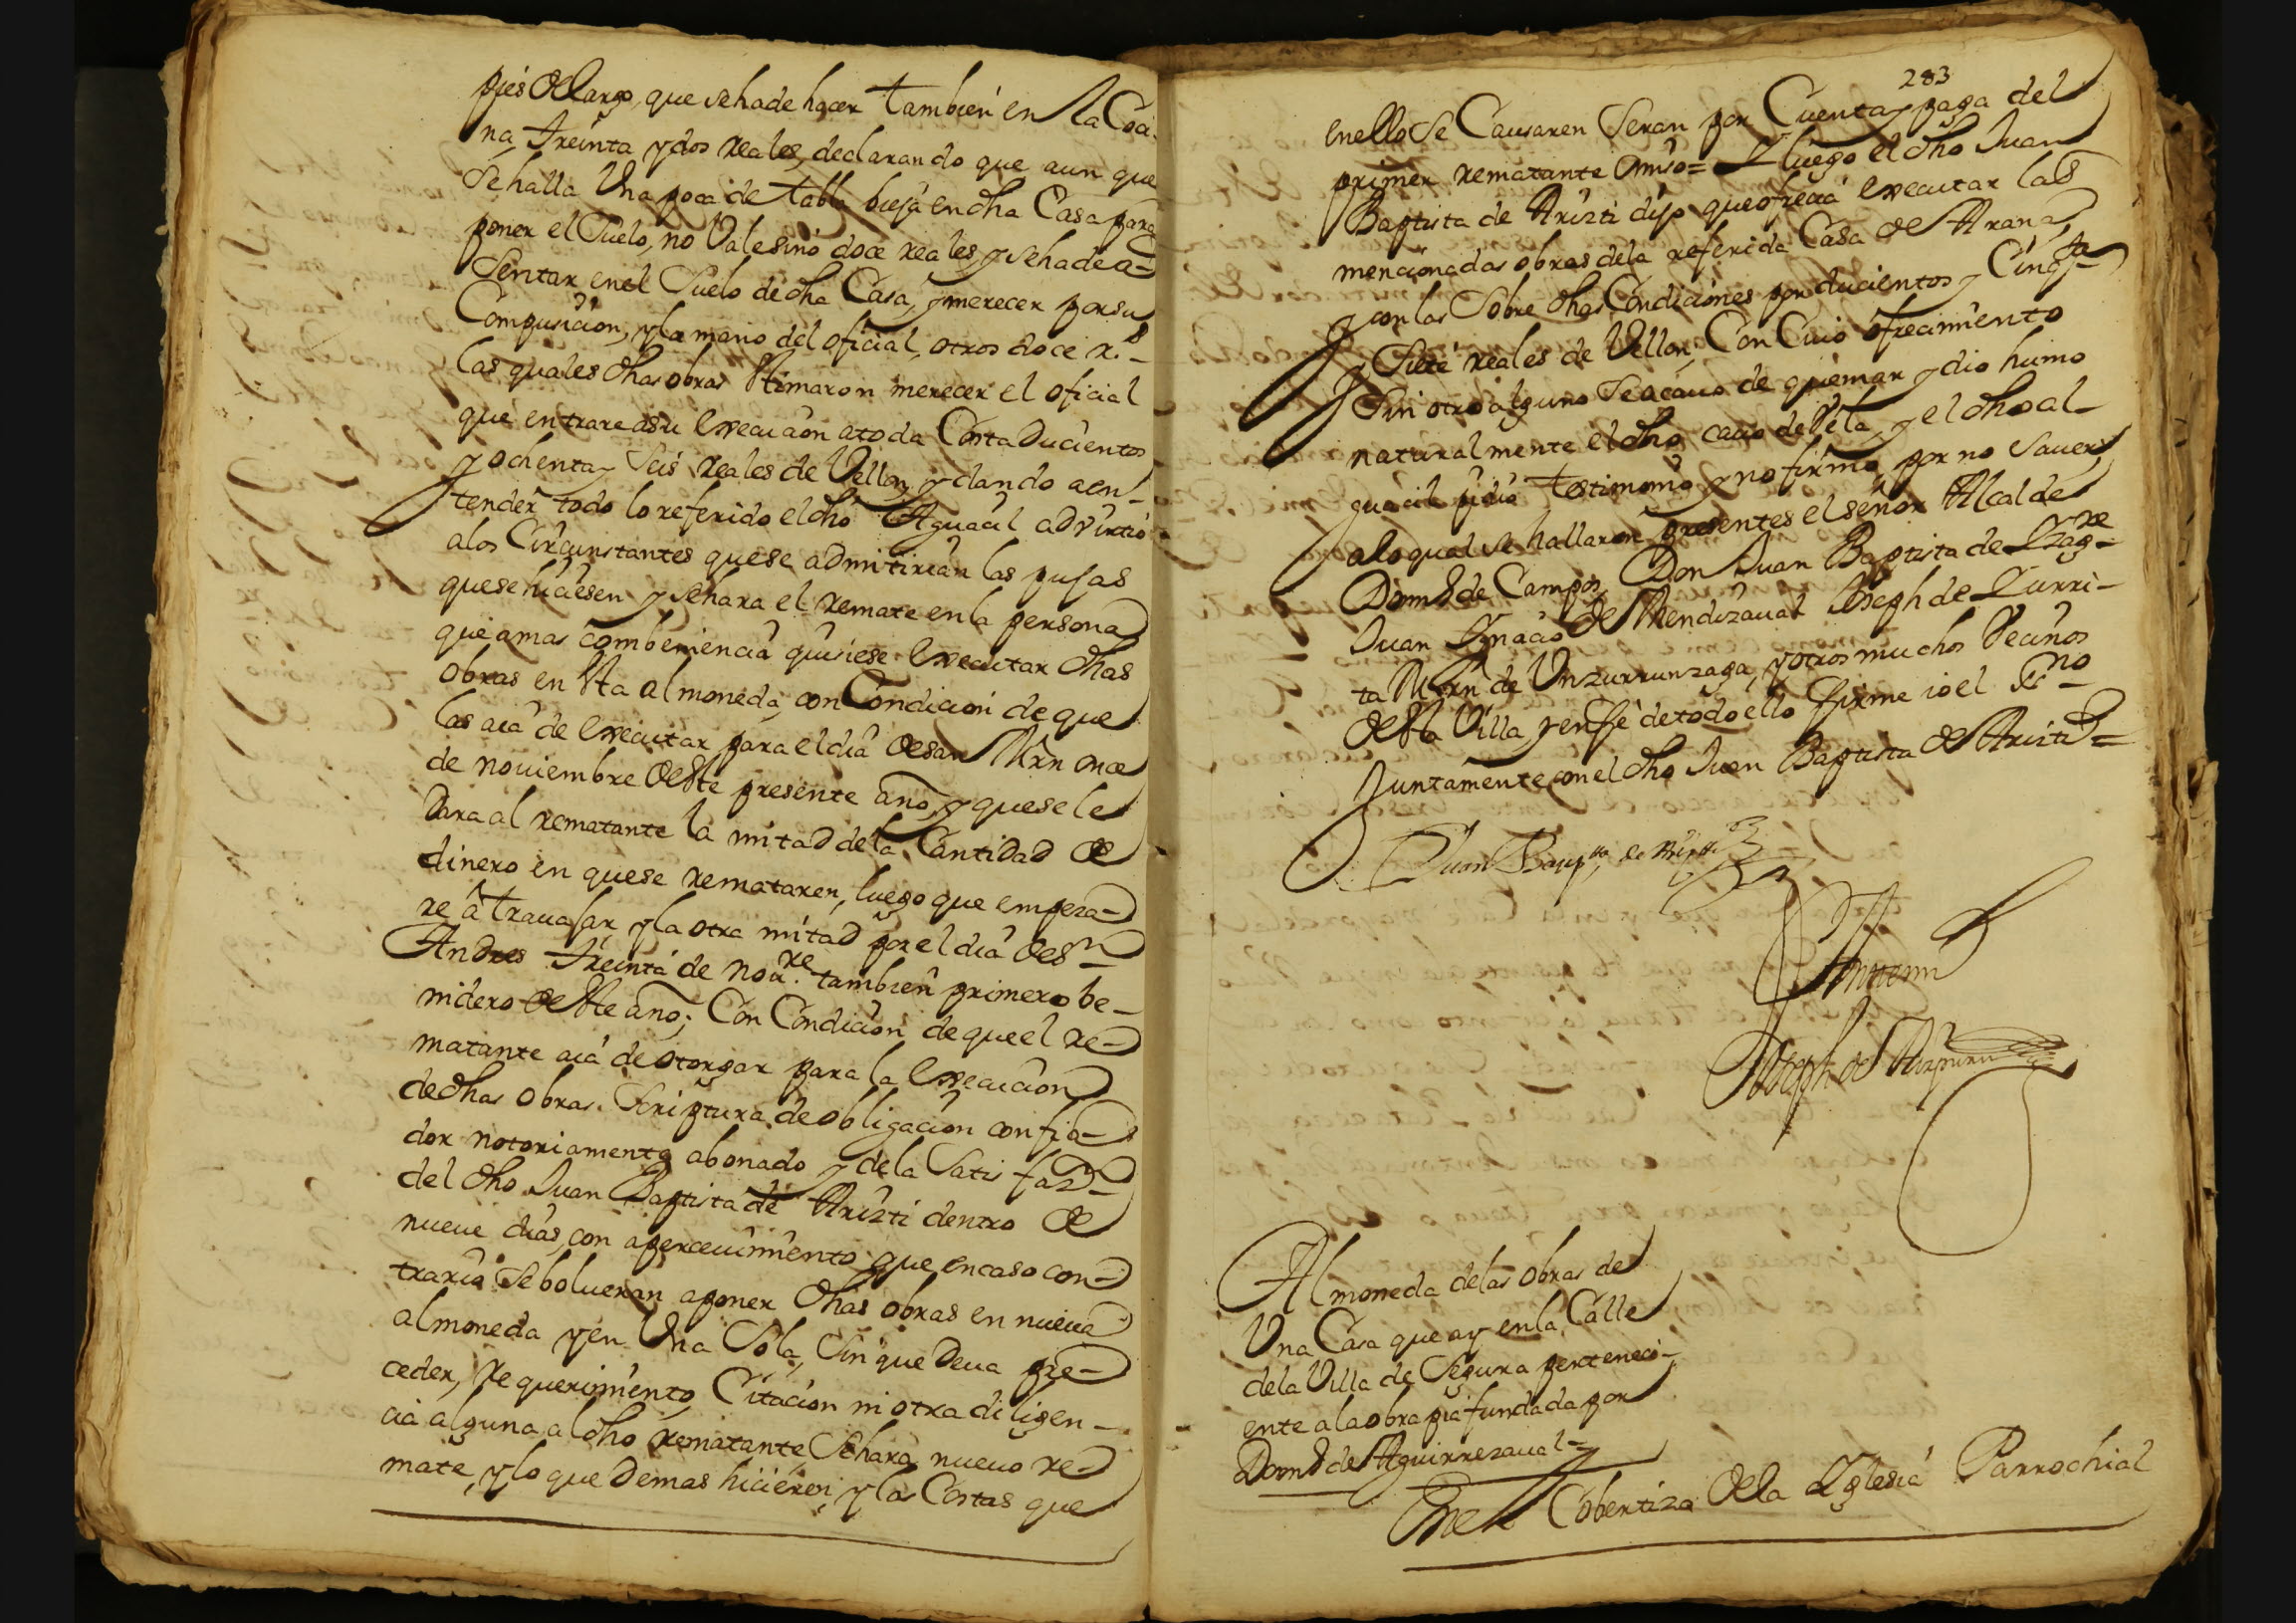 pies de largo, que se ha de hacer tambien en la Coci-
na, treinta y dos reales, declarando que aun que
se halla Una poca de tabla bieja en dha Casa para
poner el Suelo, no Vale sino doce reales, y se ha de a-
sentar en el Suelo de dha Casa, y merecer por su
Compusicion, y la mano del oficial, otros doce r.s
las quales dhas obras stimaron merecer el oficial
que entrare a su execucion a toda Costa Ducientos
y ochenta y Seis reales de Vellon, y dando a en-
tender todo lo referido el dho Alguacil advirtio
a los Circunstantes que se admitirian las pujas
que se hiciesen y se hara el remate en la persona
que a mas combeniencia quisiese executar dhas
obras en sta almoneda, con Condicion de que
las aia de executar para el dia de san Mrn once
de noviembre deste presente año, y que se le
Dara al rematante la mitad de la Cantidad de
dinero en que se remataren, luego que empeza-
re â travajar y la otra mitad por el dia de Sn
Andres treinta de novre. tambien primero be-
nidero deste año; Con Condicion de que el re-
matante aia de otorgar para la execucion
de dhas obras. Scriptura de obligacion con fia-
dor notoriamente abonado y de la Satisfaon
del dho Juan Baptista de Aristi dentro de
nueue dias, con apercevimiento que en caso con-
trario Se bolueran a poner dhas obras en nueua
almoneda y en Una Sola, Sin que Deua pre-
ceder, Requerimiento, Citacion ni otra diligen-
cia alguna al dho rematante, Se hara nueuo re-
mate, y lo que Demas hicieren, y las Costas que
283
en ello Se Causaren Seran por Cuenta y paga del
primer rematante omiso= Y luego el dho Juan
Baptista de Aristi dijo que ofrecia executar las
mencionadas obras de la referida Casa de Arana,
y con las Sobre dhas Condiciones por ducientos y Cinqta
y Siete reales de Vellon, Con Cuio ofrecimiento
Sin otro alguno Se acauo de quemar y dio humo
naturalmente el dho cauo de Vela, y el dho al-
guacil pidio testimonio y no firmo por no Sauer,
a lo qual se hallaron presentes el señor Alcalde
Domo de Campos, Don Juan Baptista de Yzag-re
Juan Ynacio de Mendizaual Joseph de Yurri-
ta Mrn de Unzurrunzaga, y otros muchos Vecinos
desta Villa y en fe de todo ello firme io el sno
Juntamente con el dho Juan Baptista de Aristi=
Juan Baupta de Aristi
Ante mi
Joseph de Aizpuru
Almoneda de las obras de
Una Casa que ay en la Calle
de la Villa de Segura perteneci-
ente a la obra pia fundada por
Domo de Aguirrezaual=
En el Cobertizo de la Yglesia Parrochial